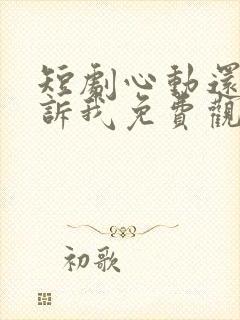 短劇心動還
訴我免費觀
初歌